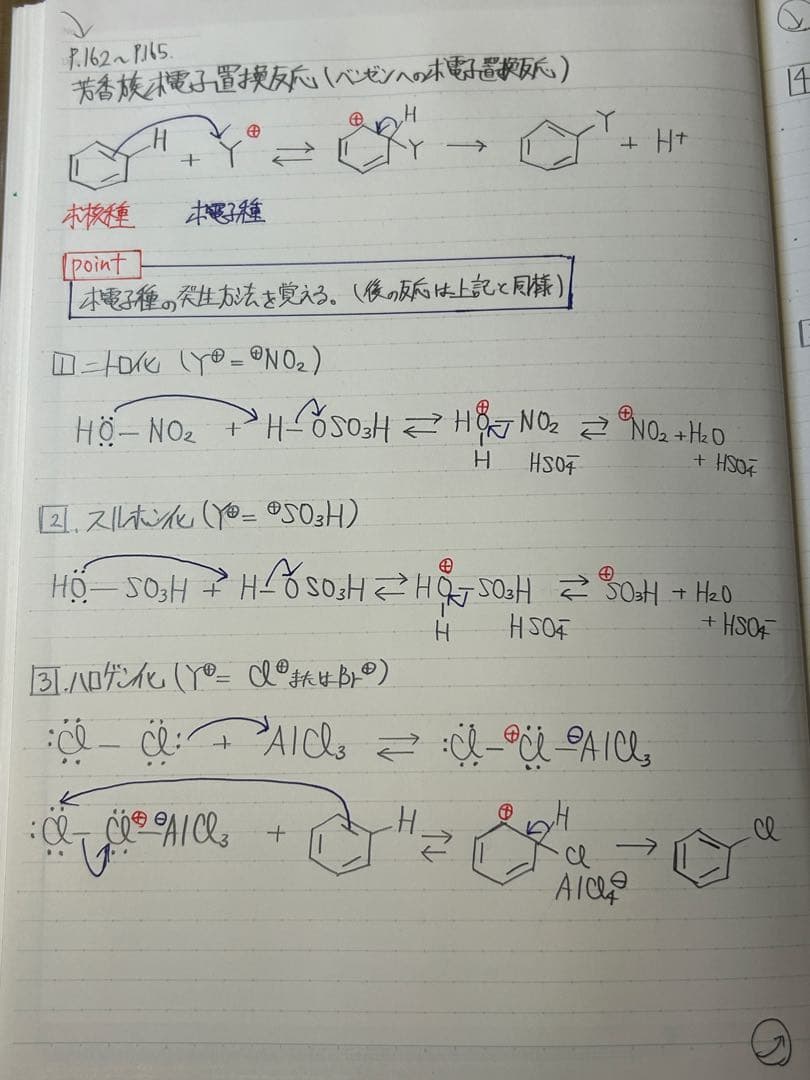 P.162～P.165.
芳香族求電子置換反応(ベンゼンへの求電子置換反応)
H + Y⊕ ⇄ ⊕ H Y → Y + H+
求核種 求電子種
point
求電子種の発生方法を覚える。(後の反応は上記と同様)
1 ニトロ化 (Y⊕ = ⊕NO2)
HÖ – NO2 + H–OSO3H ⇄ HO⊕–NO2 ⇄ ⊕NO2 + H2O
H HSO4⁻ + HSO4⁻
2. スルホン化 (Y⊕ = ⊕SO3H)
HÖ – SO3H + H–OSO3H ⇄ HO⊕–SO3H ⇄ ⊕SO3H + H2O
H HSO4⁻ + HSO4⁻
3. ハロゲン化 (Y⊕ = Cl⊕またはBr⊕)
:Cl – Cl: + AlCl3 ⇄ :Cl – ⊕Cl – ⊖AlCl3
:Cl – Cl⊕–⊖AlCl3 + H ⇄ ⊕ H Cl → Cl
AlCl4⊖
4